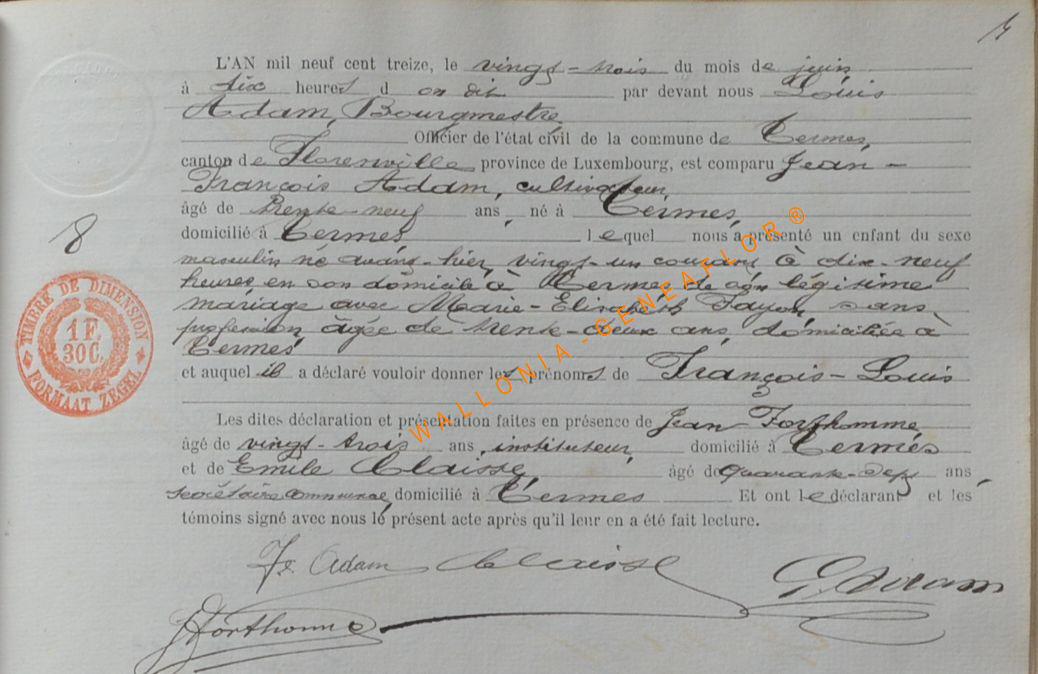 4
L'AN mil neuf cent treize, le vingt-trois du mois de juin
à dix heures d on dit par devant nous Louis
Adam, Bourgmestre
Officier de l'état civil de la commune de Termes,
canton de Florenville province de Luxembourg, est comparu Jean-
François Adam, cultivateur,
âgé de trente-neuf ans, né à Termes,
domicilié à Termes, lequel nous a présenté un enfant du sexe
masculin né avant-hier, vingt-un courant à dix-neuf
heures, en son domicile à Termes, de son légitime
mariage avec Marie-Elisabeth Fayon, sans
profession âgée de trente-deux ans, domiciliée à
Termes
et auquel il a déclaré vouloir donner les prénoms de François-Louis
Les dites déclaration et présentation faites en présence de Jean Forthomme
âgé de vingt-trois ans, instituteur, domicilié à Termes
et de Emile Claisse, âgé de quarante-sept ans,
secrétaire communal domicilié à Termes Et ont le déclarant et les
témoins signé avec nous le présent acte après qu'il leur en a été fait lecture.
Adam Claisse Adam
JForthomme
8
TIMBRE DE DIMENSION
1 F.
30 C.
FORMAAT ZEGEL
WALLONIA-GENEAFLOR®